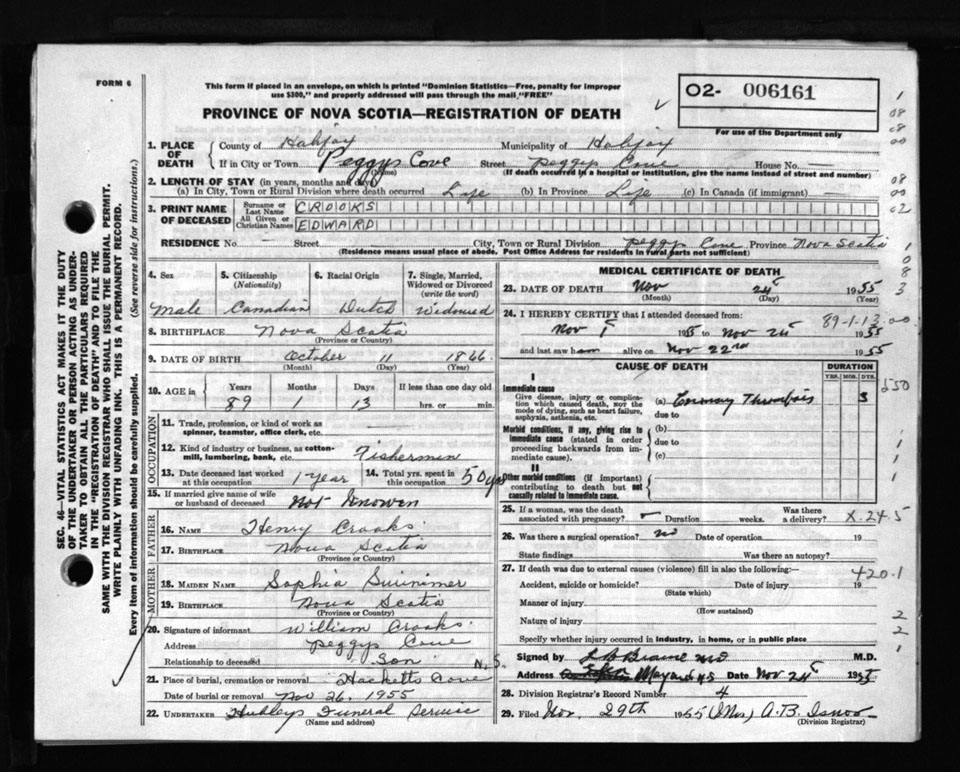 FORM 6
This form if placed in an envelope, on which is printed "Dominion Statistics—Free, penalty for improper
use $300," and properly addressed will pass through the mail "FREE"
O2- 006161
For use of the Department only
PROVINCE OF NOVA SCOTIA—REGISTRATION OF DEATH
1. PLACE OF DEATH
County of Halifax Municipality of Halifax
If in City or Town Peggys Cove Street Peggys Cove House No. —
(Name) (If death occurred in a hospital or institution, give the name instead of street and number)
2. LENGTH OF STAY (in years, months and days)
(a) In City, Town or Rural Division where death occurred Life (b) In Province Life (c) In Canada (if immigrant) —
3. PRINT NAME OF DECEASED
Surname or Last Name CROOKS
All Given or Christian Names EDWARD
RESIDENCE No. — Street City, Town or Rural Division Peggys Cove Province Nova Scotia
(Residence means usual place of abode. Post Offices for residents in rural parts not sufficient)
4. Sex 5. Citizenship (Nationality) 6. Racial Origin 7. Single, Married, Widowed or Divorced (write the word)
Male Canadian Dutch Widowed
8. BIRTHPLACE Nova Scotia
(Province or Country)
9. DATE OF BIRTH October 11 1866
(Month) (Day) (Year)
10. AGE in Years Months Days If less than one day old
89 1 13 hrs. or min.
OCCUPATION
11. Trade, profession, or kind of work as
spinner, teamster, office clerk, etc. —
12. Kind of industry or business, as cotton-
mill, lumbering, bank, etc. Fishermen
13. Date deceased last worked at this occupation 1 year 14. Total yrs. spent in this occupation 50 yrs
15. If married give name of wife
or husband of deceased Not Knowen
FATHER
16. NAME Henry Crooks
17. BIRTHPLACE Nova Scotia
(Province or Country)
MOTHER
18. MAIDEN NAME Sophia
19. BIRTHPLACE Nova Scotia
(Province or Country)
20. Signature of informant William Crooks
Address Peggys Cove
Relationship to deceased Son N.S.
21. Place of burial, cremation or removal Hacketts Cove
Date of burial or removal Nov 26, 1955
22. UNDERTAKER Hubleys Funeral Service
(Name and address)
MEDICAL CERTIFICATE OF DEATH
23. DATE OF DEATH Nov 24 1955
(Month) (Day) (Year)
24. I HEREBY CERTIFY that I attended deceased from:
Nov 1955 to Nov 24 1955
89-1-13
and last saw h alive on Nov 22nd 1955
CAUSE OF DEATH DURATION
YRS. MOS. DYS.
I
Immediate cause
Give disease, injury or complica-
tion which caused death, not the
mode of dying, such as heart failure,
asphyxia, asthenia, etc.
(a) Coronary Thrombosis 3
due to
Morbid conditions, if any, giving rise to
immediate cause (stated in order
proceeding backwards from im-
mediate cause).
(b)
due to
(c)
II
Other morbid conditions (if important)
contributing to death but not
causally related to immediate cause.
25. If a woman, was the death associated with pregnancy? — Duration weeks. Was there a delivery?
X-245
26. Was there a surgical operation? no Date of operation 19
State findings Was there an autopsy?
27. If death was due to external causes (violence) fill in also the following:—
420.1
Accident, suicide or homicide? Date of injury 19
(State which)
Manner of injury
(How sustained)
Nature of injury
Specify whether injury occurred in industry, in home, or in public place
Signed by M.D.
Address Date Nov 24 1955
28. Division Registrar's Record Number 4
29. Filed Nov. 29th 1955 (Mrs) A.B.
(Division Registrar)
SEC. 46—VITAL STATISTICS ACT MAKES IT THE DUTY
OF THE UNDERTAKER OR PERSON ACTING AS UNDER-
TAKER TO OBTAIN ALL THE PARTICULARS REQUIRED
IN THE "REGISTRATION OF DEATH" AND TO FILE THE
SAME WITH THE DIVISION REGISTRAR WHO SHALL ISSUE THE BURIAL PERMIT.
WRITE PLAINLY WITH UNFADING INK. THIS IS A PERMANENT RECORD.
Every item of information should be carefully supplied. (See reverse side for instructions.)